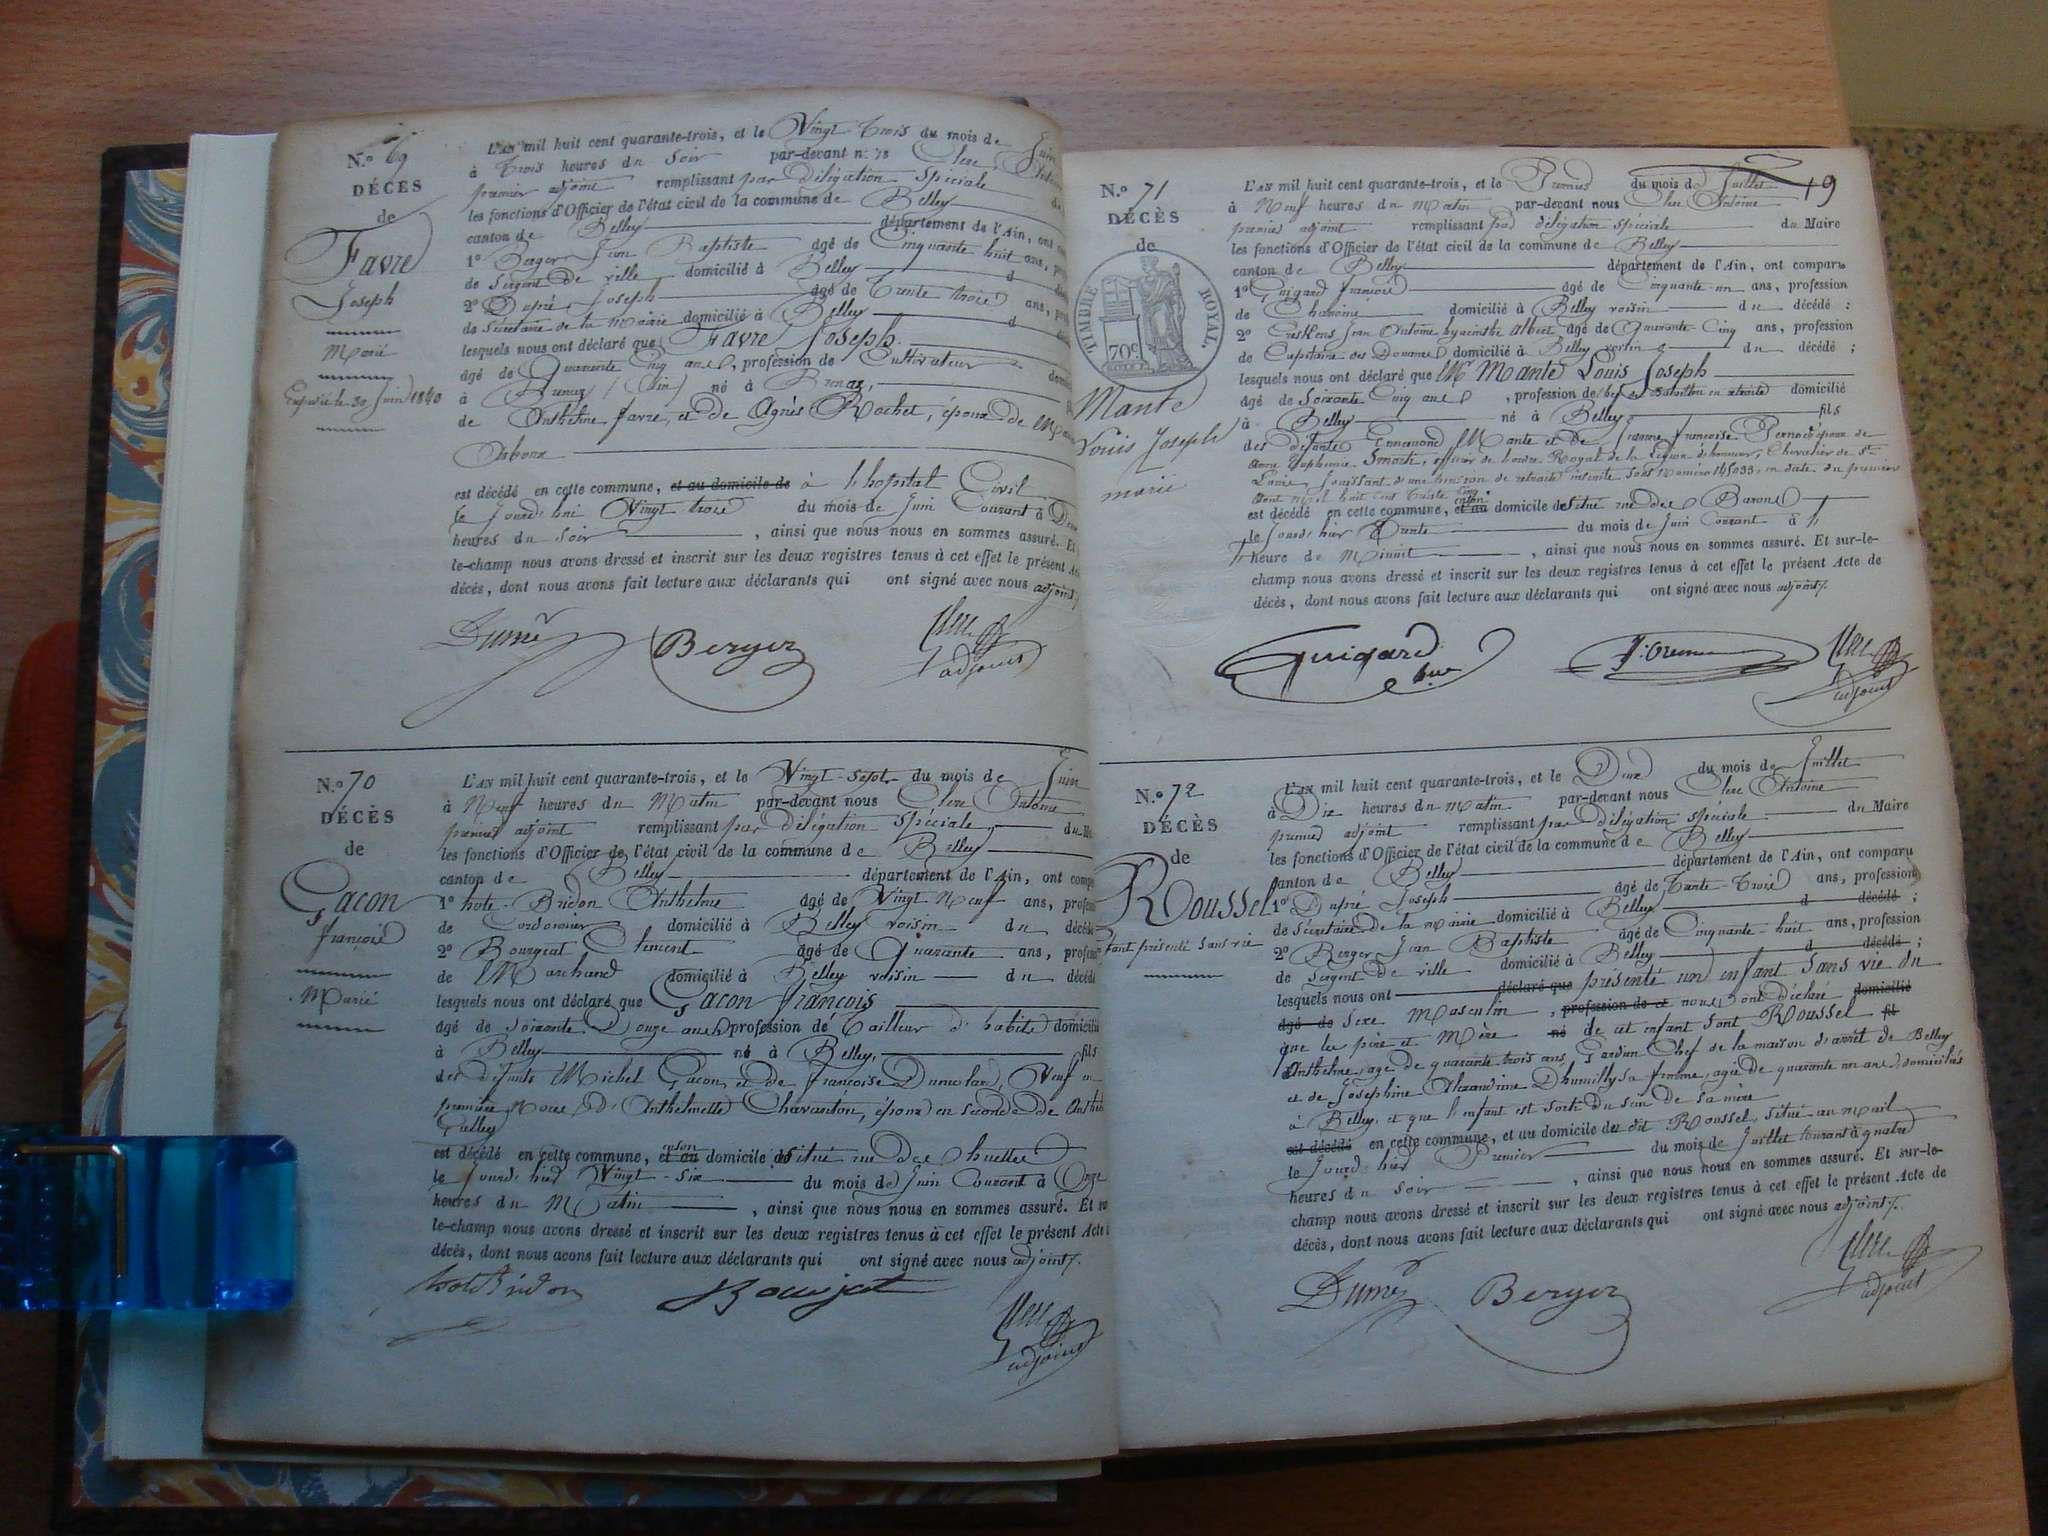 N.º 69
DÉCÈS
de
Favre
Joseph
Marié
Expédié le 30 Juin 1840
L'AN mil huit cent quarante-trois, et le Vingt Trois du mois de Juin
à Trois heures du Soir par-devant nous Clerc Antoine
premier adjoint remplissant par délégation Spéciale
les fonctions d'Officier de l'état civil de la commune de Belley
canton de Belley département de l'Ain, ont
1º Berger Jean Baptiste âgé de Cinquante huit ans,
de Sergent de ville domicilié à Belley
2º Dupré Joseph âgé de Trente trois ans,
de Sécrétaire de la Mairie domicilié à Belley
lesquels nous ont déclaré que Favre Joseph
âgé de Quarante Cinq ans, profession de Cultivateur
à (Ain) né à
de Anthelme favre, et de Agnès Rochet, époux de
est décédé en cette commune, et au domicile de à l'hopital Civil
le Jourd'hui Vingt trois du mois de Juin Courant à
heures du Soir, ainsi que nous nous en sommes assuré. Et
le-champ nous avons dressé et inscrit sur les deux registres tenus à cet effet le présent Acte
décès, dont nous avons fait lecture aux déclarants qui ont signé avec nous adjoint
Berger
adjoint
N.º 70
DÉCÈS
de
Gacon
françois
Marié
L'AN mil huit cent quarante-trois, et le Vingt-Sept du mois de Juin
à Neuf heures du Matin par-devant nous Clerc Antoine
premier adjoint remplissant par délégation Spéciale du
les fonctions d'Officier de l'état civil de la commune de Belley
canton de Belley département de l'Ain, ont
1º hote-Bridon Anthelme âgé de Vingt Neuf ans,
de Cordonnier domicilié à Belley voisin du décédé
2º Bourgeat Clément âgé de Quarante ans,
de Marchand domicilié à Belley voisin du décédé
lesquels nous ont déclaré que Gacon françois
âgé de Soixante Douze ans profession de Tailleur d'habits domicilié
à Belley né à Belley, fils
des défunts Michel Gacon et de françoise, Veuf en
première Noces d'Anthelmette Chavanton, époux en seconde de
est décédé en cette commune, et au en son domicile situé rue des
le Jourd'hier Vingt-Six du mois de Juin Courant à Onze
heures du Matin, ainsi que nous nous en sommes assuré. Et
le-champ nous avons dressé et inscrit sur les deux registres tenus à cet effet le présent Acte
décès, dont nous avons fait lecture aux déclarants qui ont signé avec nous adjoint
hote Bridon
Bourgeat
adjoint
19
N.º 71
DÉCÈS
de
TIMBRE ROYAL.
70c.
Mante
Louis Joseph
marié
L'AN mil huit cent quarante-trois, et le Premier du mois de Juillet
à Neuf heures du Matin par-devant nous Clerc Antoine
premier adjoint remplissant par délégation spéciale du Maire
les fonctions d'Officier de l'état civil de la commune de Belley
canton de Belley département de l'Ain, ont comparu
1º Guigard françois âgé de Cinquante-un ans, profession
de Chanoine domicilié à Belley voisin du décédé :
2º Jean Antoine hyacinthe Albert âgé de Quarante-Cinq ans, profession
de Capitaine des Douanes domicilié à Belley voisin du décédé ;
lesquels nous ont déclaré que Mr Mante Louis Joseph
âgé de Soixante Cinq ans, profession de Chef de Bataillon en retraite domicilié
à Belley né à Belley fils
des défunts Ennemond Mante et de Jeanne françoise époux de
Anne Euphémie, officier de l'ordre Royal de la Légion d'honneur, Chevalier de St
Louis, Jouissant d'une pension de retraite inscrite Sous Numéro 145033, en date du premier
Aout mil huit Cent trente Cinq
est décédé en cette commune, et au en son domicile situé rue des Barons
le Jourd'hier Trente du mois de Juin Courant à
heure de Minuit, ainsi que nous nous en sommes assuré. Et sur-le-
champ nous avons dressé et inscrit sur les deux registres tenus à cet effet le présent Acte de
décès, dont nous avons fait lecture aux déclarants qui ont signé avec nous adjoint
Guigard
adjoint
N.º 72
DÉCÈS
de
Roussel
Enfant présenté Sans vie
L'AN mil huit cent quarante-trois, et le Deux du mois de Juillet
à Dix heures du matin par-devant nous Clerc Antoine
premier adjoint remplissant par délégation spéciale du Maire
les fonctions d'Officier de l'état civil de la commune de Belley
canton de Belley département de l'Ain, ont comparu
1º Dupré Joseph âgé de Trente-Trois ans, profession
de Sécrétaire de la mairie domicilié à Belley d décédé ;
2º Berger Jean Baptiste âgé de Cinquante-huit ans, profession
de Sergent de ville domicilié à Belley d décédé ;
lesquels nous ont déclaré que présenté un enfant Sans vie du
âgé de Sexe Masculin, profession de et nous ont déclaré domicilié
que les père et Mère né de cet enfant sont Roussel fil
Anthelme, agé de quarante trois ans, Gardien Chef de la maison d'arrêt de Belley
et de Joséphine Alexandrine Dhumilly sa femme, agée de quarante un ans, domiciliés
à Belley, et que l'enfant est sorti du sein de sa mère
est décédé en cette commune, et au domicile du dit Roussel, situé au mail
le Jourd'hier Premier du mois de Juillet Courant à quatre
heures du Soir, ainsi que nous nous en sommes assuré. Et sur-le-
champ nous avons dressé et inscrit sur les deux registres tenus à cet effet le présent Acte de
décès, dont nous avons fait lecture aux déclarants qui ont signé avec nous adjoint
Berger
adjoint